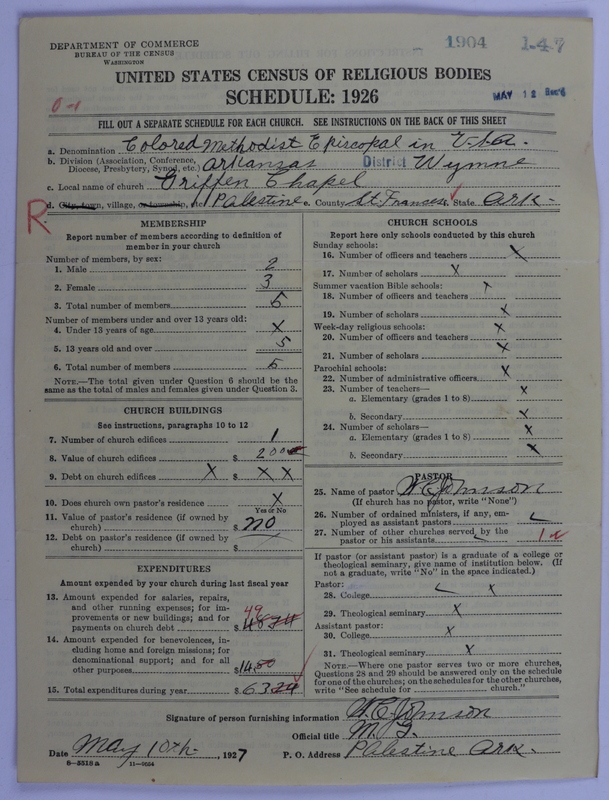 DEPARTMENT OF COMMERCE
BUREAU OF THE CENSUS
WASHINGTON
1904 1-47
UNITED STATES CENSUS OF RELIGIOUS BODIES
SCHEDULE: 1926
MAY 12
0-1
FILL OUT A SEPARATE SCHEDULE FOR EACH CHURCH. SEE INSTRUCTIONS ON THE BACK OF THIS SHEET
a. Denomination Colored Methodist Episcopal in U.S.A.
b. Division (Association, Conference, Diocese, Presbytery, Synod, etc.) Arkansas District Wynne
c. Local name of church Griffen Chapel
d. City, town, village, or township, Palestine e. County St. Franses State Ark-
R
MEMBERSHIP
Report number of members according to definition of
member in your church
Number of members, by sex:
1. Male 2
2. Female 3
3. Total number of members 5
Number of members under and over 13 years old:
4. Under 13 years of age X
5. 13 years old and over 5
6. Total number of members 5
NOTE.—The total given under Question 6 should be the
same as the total of males and females given under Question 3.
CHURCH BUILDINGS
See instructions, paragraphs 10 to 12
7. Number of church edifices 1
8. Value of church edifices $ 200
9. Debt on church edifices X $ X X
10. Does church own pastor's residence X
Yes or No
11. Value of pastor's residence (if owned by
church) $ no
12. Debt on pastor's residence (if owned by
church) $
EXPENDITURES
Amount expended by your church during last fiscal year
13. Amount expended for salaries, repairs,
and other running expenses; for im-
provements or new buildings; and for
payments on church debt $ 49
14. Amount expended for benevolences, in-
cluding home and foreign missions; for
denominational support; and for all
other purposes $ 14.80
15. Total expenditures during year $ 63
CHURCH SCHOOLS
Report here only schools conducted by this church
Sunday schools:
16. Number of officers and teachers X
17. Number of scholars X
Summer vacation Bible schools:
18. Number of officers and teachers
19. Number of scholars X
Week-day religious schools: X
20. Number of officers and teachers
21. Number of scholars X
Parochial schools:
22. Number of administrative officers X
23. Number of teachers— X
a. Elementary (grades 1 to 8)
b. Secondary X
24. Number of scholars— X
a. Elementary (grades 1 to 8)
b. Secondary X
PASTOR
25. Name of pastor W. C. Johnson
(If church has no pastor, write "None")
26. Number of ordained ministers, if any, em-
ployed as assistant pastors
27. Number of other churches served by the
pastor or his assistants 1
If pastor (or assistant pastor) is a graduate of a college or
theological seminary, give name of institution below. (If
not a graduate, write "No" in the space indicated.)
Pastor:
28. College X
29. Theological seminary X
Assistant pastor:
30. College X
31. Theological seminary X
NOTE.—Where one pastor serves two or more churches,
Questions 28 and 29 should be answered only on the schedule
for one of the churches; on the schedules for the other churches,
write "See schedule for church."
Signature of person furnishing information W. C. Johnson
Official title M. G.
Date May 10th, 1927 P. O. Address Palestine Ark.
8-5318a 11-9024